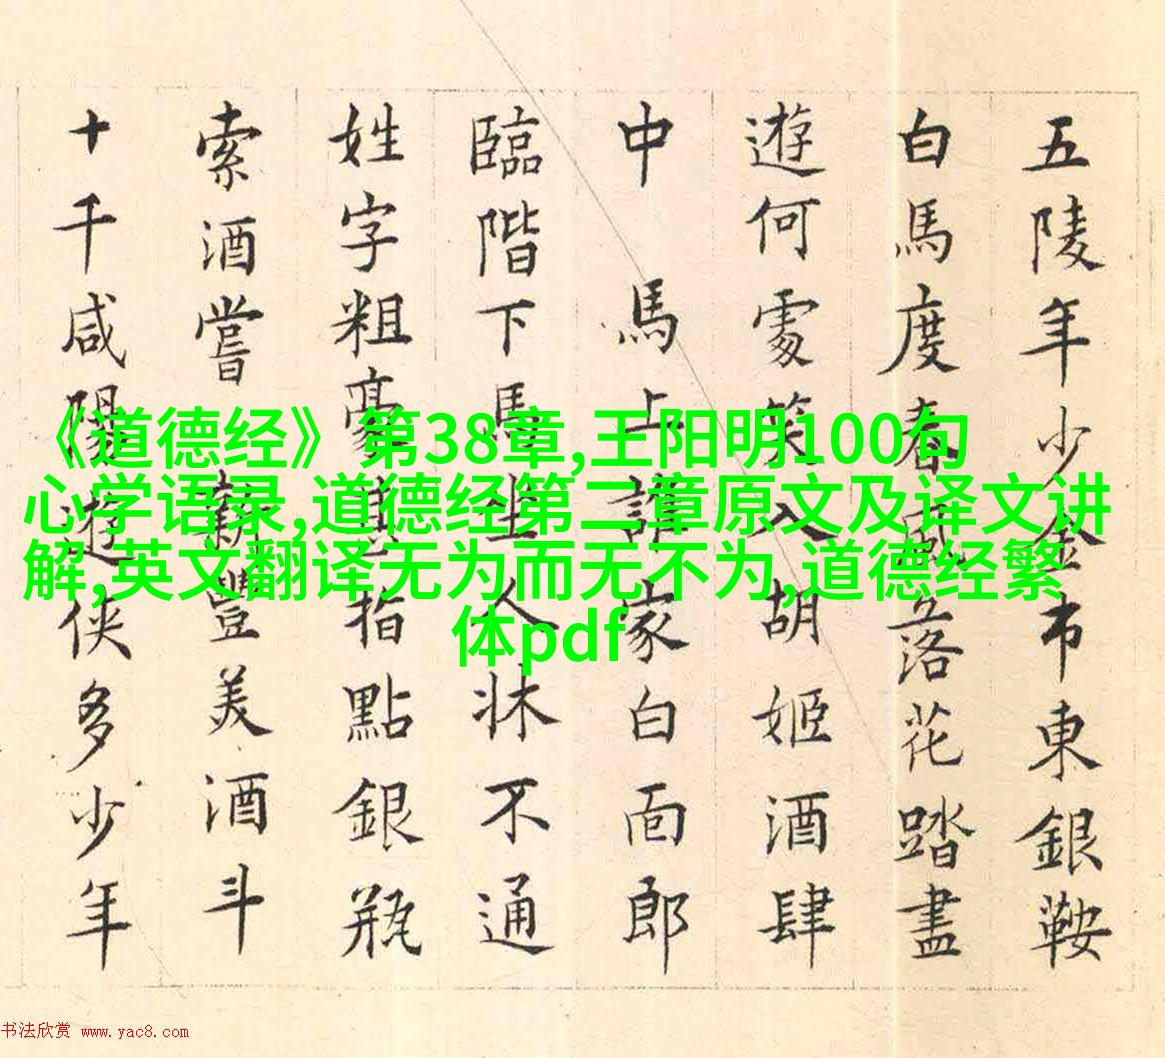 五陵年少金市東銀鞍
白馬度春風落花踏盡
遊何處笑入胡姬酒肆
中 馬上誰家白面郎
臨階下馬坐人牀不通
姓字粗豪甚指點銀瓶
索酒嘗 新豐美酒斗
十千咸陽遊俠多少年
《道德经》第38章,王阳明100句
心学语录,道德经第二章原文及译文讲
解,英文翻译无为而无不为,道德经繁
体pdf
书法欣赏 www.yac8.com